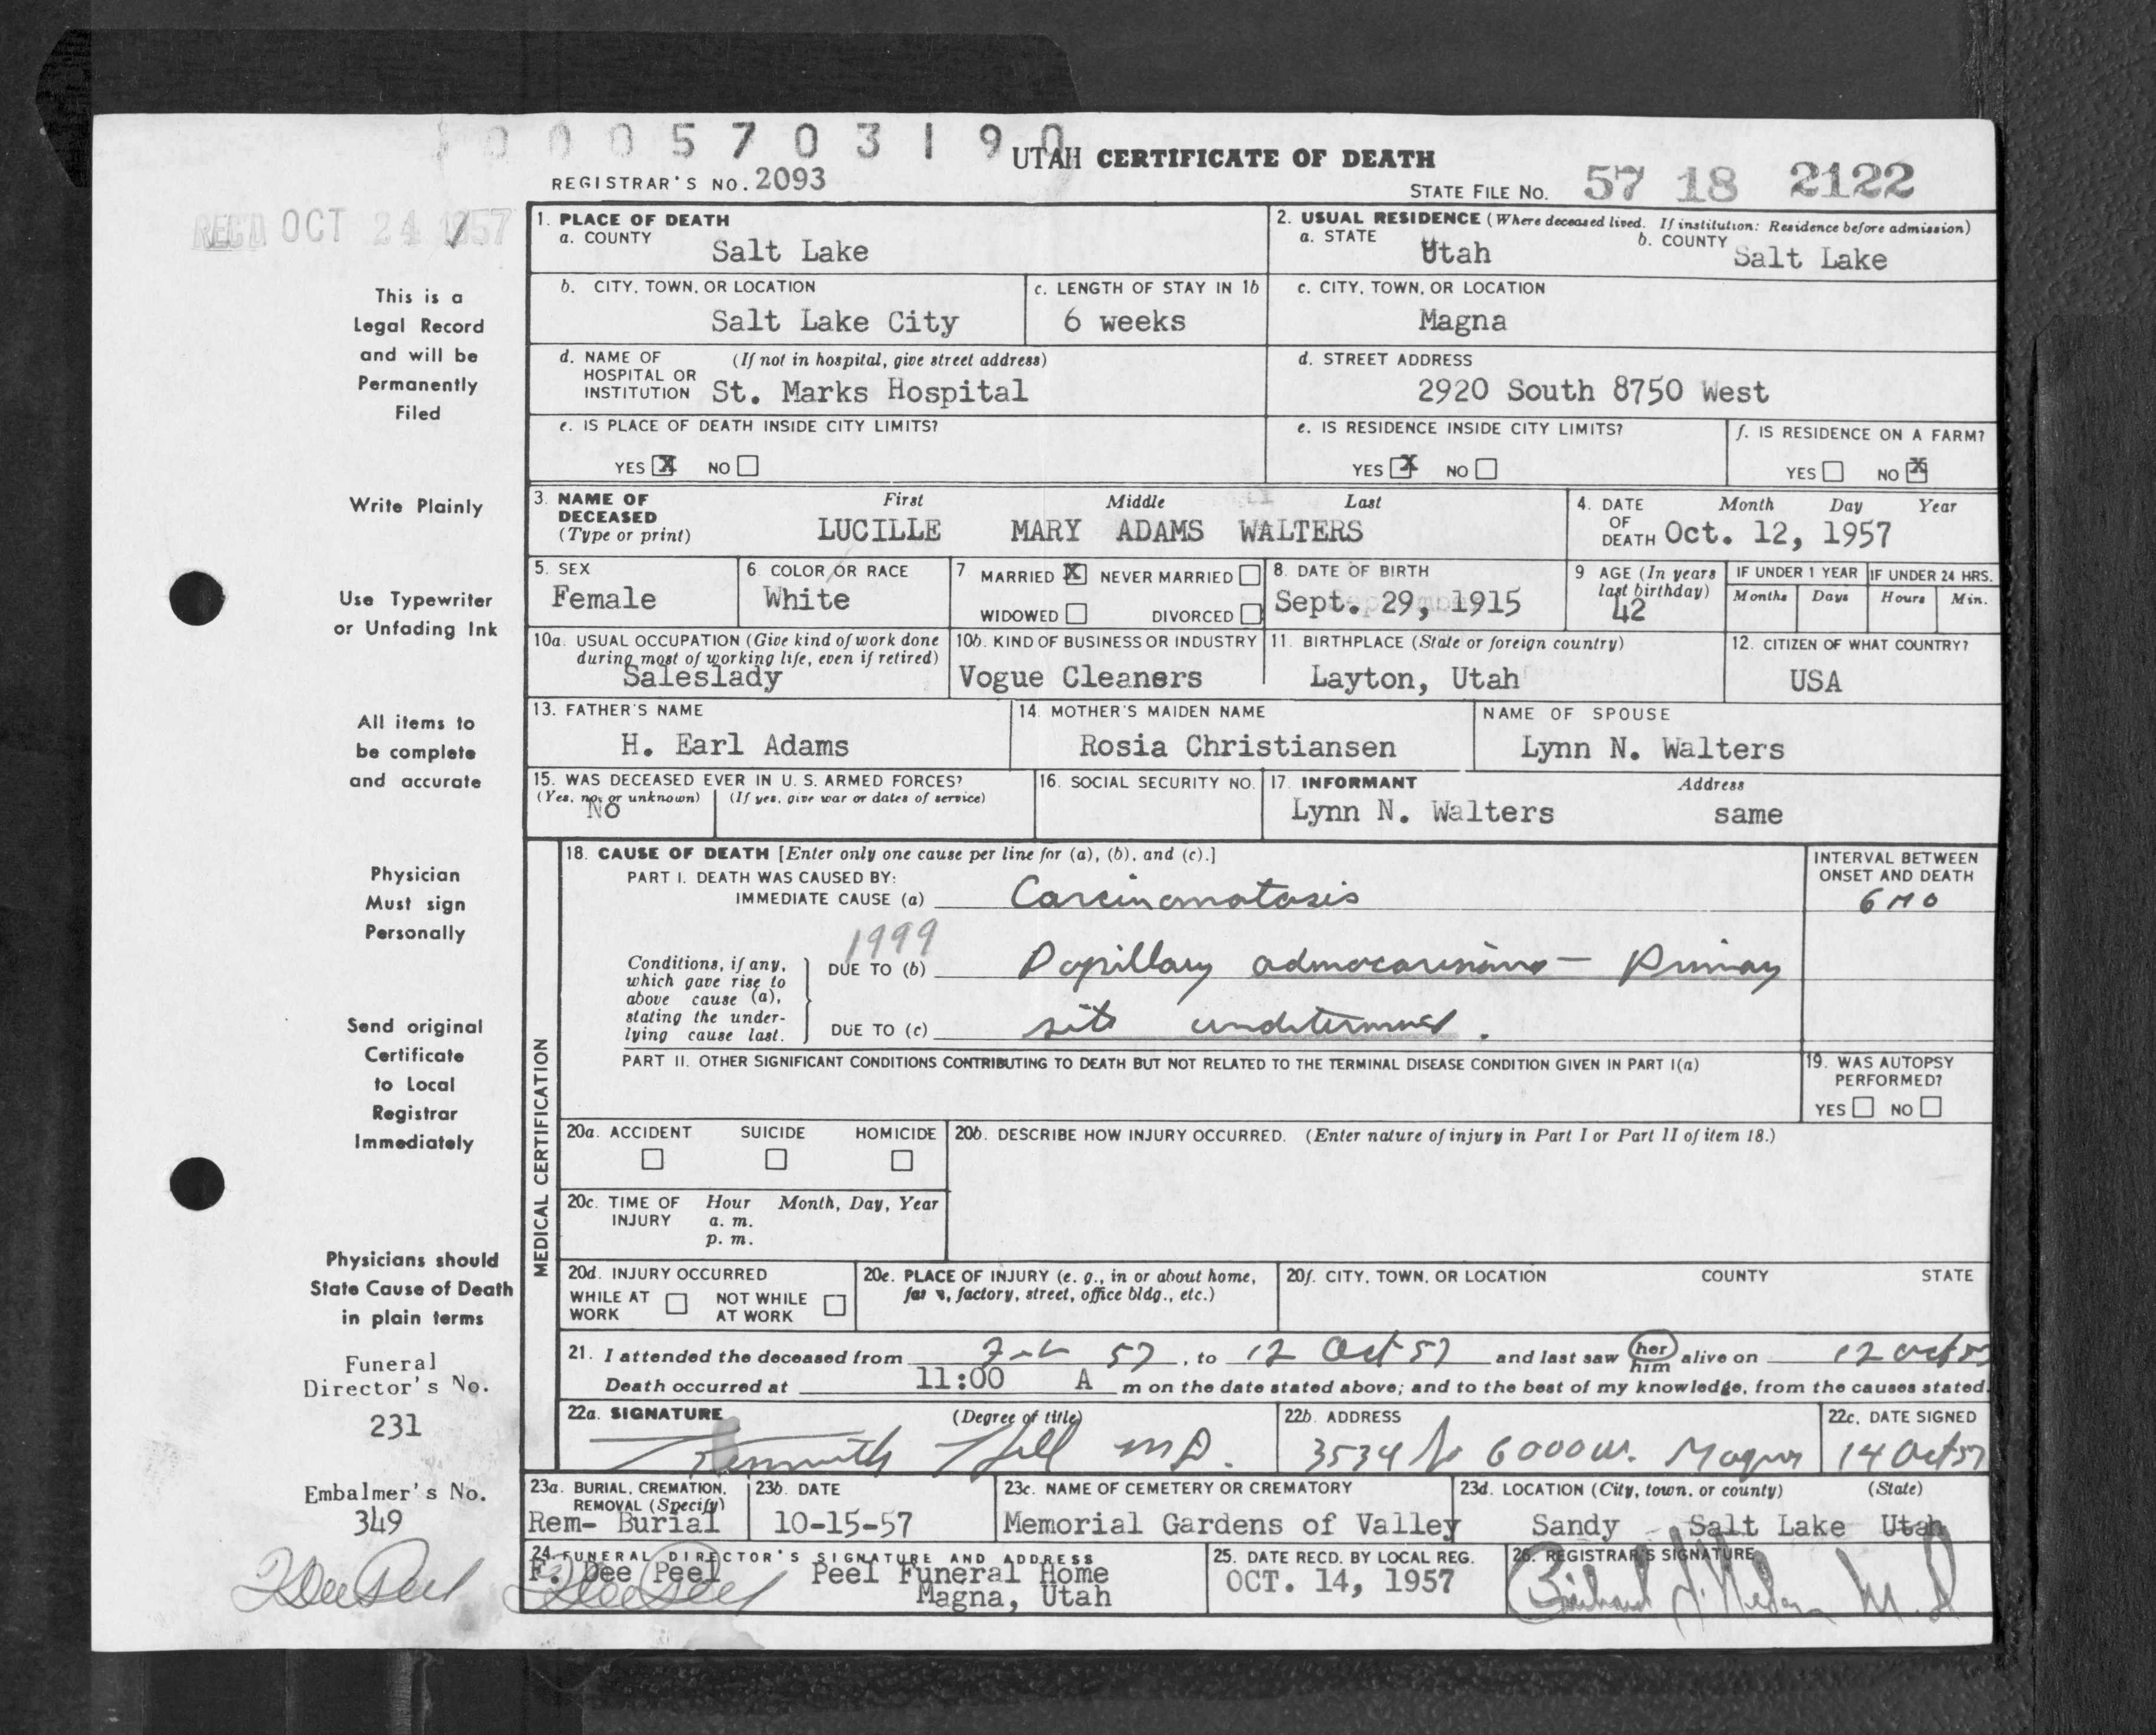 0 0 0 5 7 0 3 1 9 0
UTAH CERTIFICATE OF DEATH
REGISTRAR'S NO. 2093
STATE FILE NO. 57 18 2122
REC'D OCT 24 1957
This is a
Legal Record
and will be
Permanently
Filed
Write Plainly
Use Typewriter
or Unfading Ink
All items to
be complete
and accurate
Physician
Must sign
Personally
Send original
Certificate
to Local
Registrar
Immediately
Physicians should
State Cause of Death
in plain terms
Funeral
Director's No.
231
Embalmer's No.
349
1. PLACE OF DEATH
a. COUNTY Salt Lake
2. USUAL RESIDENCE (Where deceased lived. If institution: Residence before admission)
a. STATE Utah b. COUNTY Salt Lake
b. CITY, TOWN, OR LOCATION
Salt Lake City
c. LENGTH OF STAY IN 1b
6 weeks
c. CITY, TOWN, OR LOCATION
Magna
d. NAME OF (If not in hospital, give street address)
HOSPITAL OR
INSTITUTION St. Marks Hospital
d. STREET ADDRESS
2920 South 8750 West
e. IS PLACE OF DEATH INSIDE CITY LIMITS?
YES X NO
e. IS RESIDENCE INSIDE CITY LIMITS?
YES X NO
f. IS RESIDENCE ON A FARM?
YES NO X
3. NAME OF DECEASED (Type or print)
First Middle Last
LUCILLE MARY ADAMS WALTERS
4. DATE OF DEATH Month Day Year
Oct. 12, 1957
5. SEX
Female
6. COLOR OR RACE
White
7. MARRIED X NEVER MARRIED
WIDOWED DIVORCED
8. DATE OF BIRTH
Sept. 29, 1915
9 AGE (In years last birthday)
42
IF UNDER 1 YEAR IF UNDER 24 HRS.
Months Days Hours Min.
10a. USUAL OCCUPATION (Give kind of work done
during most of working life, even if retired)
Saleslady
10b. KIND OF BUSINESS OR INDUSTRY
Vogue Cleaners
11. BIRTHPLACE (State or foreign country)
Layton, Utah
12. CITIZEN OF WHAT COUNTRY?
USA
13. FATHER'S NAME
H. Earl Adams
14. MOTHER'S MAIDEN NAME
Rosia Christiansen
NAME OF SPOUSE
Lynn N. Walters
15. WAS DECEASED EVER IN U. S. ARMED FORCES?
(Yes, no, or unknown) (If yes, give war or dates of service)
No
16. SOCIAL SECURITY NO.
17. INFORMANT Address
Lynn N. Walters same
MEDICAL CERTIFICATION
18. CAUSE OF DEATH [Enter only one cause per line for (a), (b), and (c).]
PART I. DEATH WAS CAUSED BY:
IMMEDIATE CAUSE (a) Carcinomatosis
INTERVAL BETWEEN
ONSET AND DEATH
6 MO
1999
Conditions, if any,
which gave rise to
above cause (a),
stating the under-
lying cause last.
DUE TO (b) Papillary adenocarcinoma - Primary
DUE TO (c) site undetermined.
PART II. OTHER SIGNIFICANT CONDITIONS CONTRIBUTING TO DEATH BUT NOT RELATED TO THE TERMINAL DISEASE CONDITION GIVEN IN PART I(a)
19. WAS AUTOPSY
PERFORMED?
YES NO
20a. ACCIDENT SUICIDE HOMICIDE
20b. DESCRIBE HOW INJURY OCCURRED. (Enter nature of injury in Part I or Part II of item 18.)
20c. TIME OF INJURY Hour Month, Day, Year
a. m.
p. m.
20d. INJURY OCCURRED
WHILE AT WORK NOT WHILE AT WORK
20e. PLACE OF INJURY (e. g., in or about home,
farm, factory, street, office bldg., etc.)
20f. CITY, TOWN, OR LOCATION COUNTY STATE
21. I attended the deceased from 57, to 12 Oct 57 and last saw her him alive on 12 Oct 57
Death occurred at 11:00 A m on the date stated above; and to the best of my knowledge, from the causes stated.
22a. SIGNATURE (Degree of title)
Kenneth Hill MD.
22b. ADDRESS
3534 So 6000 W. Magna
22c. DATE SIGNED
14 Oct 57
23a. BURIAL, CREMATION,
REMOVAL (Specify)
Rem- Burial
23b. DATE
10-15-57
23c. NAME OF CEMETERY OR CREMATORY
Memorial Gardens of Valley
23d. LOCATION (City, town, or county) (State)
Sandy Salt Lake Utah
24. FUNERAL DIRECTOR'S SIGNATURE AND ADDRESS
F. Dee Peel Peel Funeral Home
Magna, Utah
25. DATE RECD. BY LOCAL REG.
OCT. 14, 1957
26. REGISTRAR'S SIGNATURE